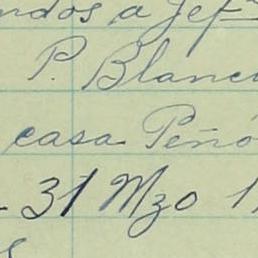 ndos a Jef
P. Blanc
casa Peñó
31 Mzo 1